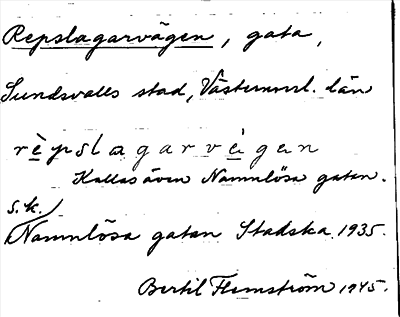 Repslagarvägen, gata,
Sundsvalls stad, Västernorrl. län
rèpslagarvègan
Kallas även Namnlösa gatan.
s.k.
Namnlösa gatan Stadska 1935.
Bertil Flemström 1945.